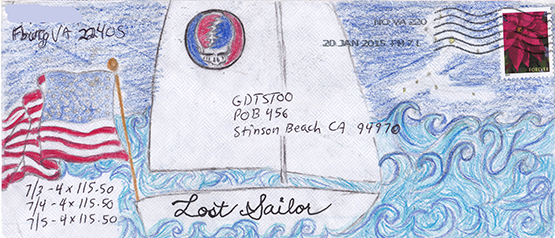 Fburg VA 22405
NO VA 220
20 JAN 2015 PM 7 L
FOREVER
GDTSTOO
POB 456
Stinson Beach CA 94970
7/3 - 4 x 115.50
7/4 - 4 x 115.50
7/5 - 4 x 115.50
Lost Sailor